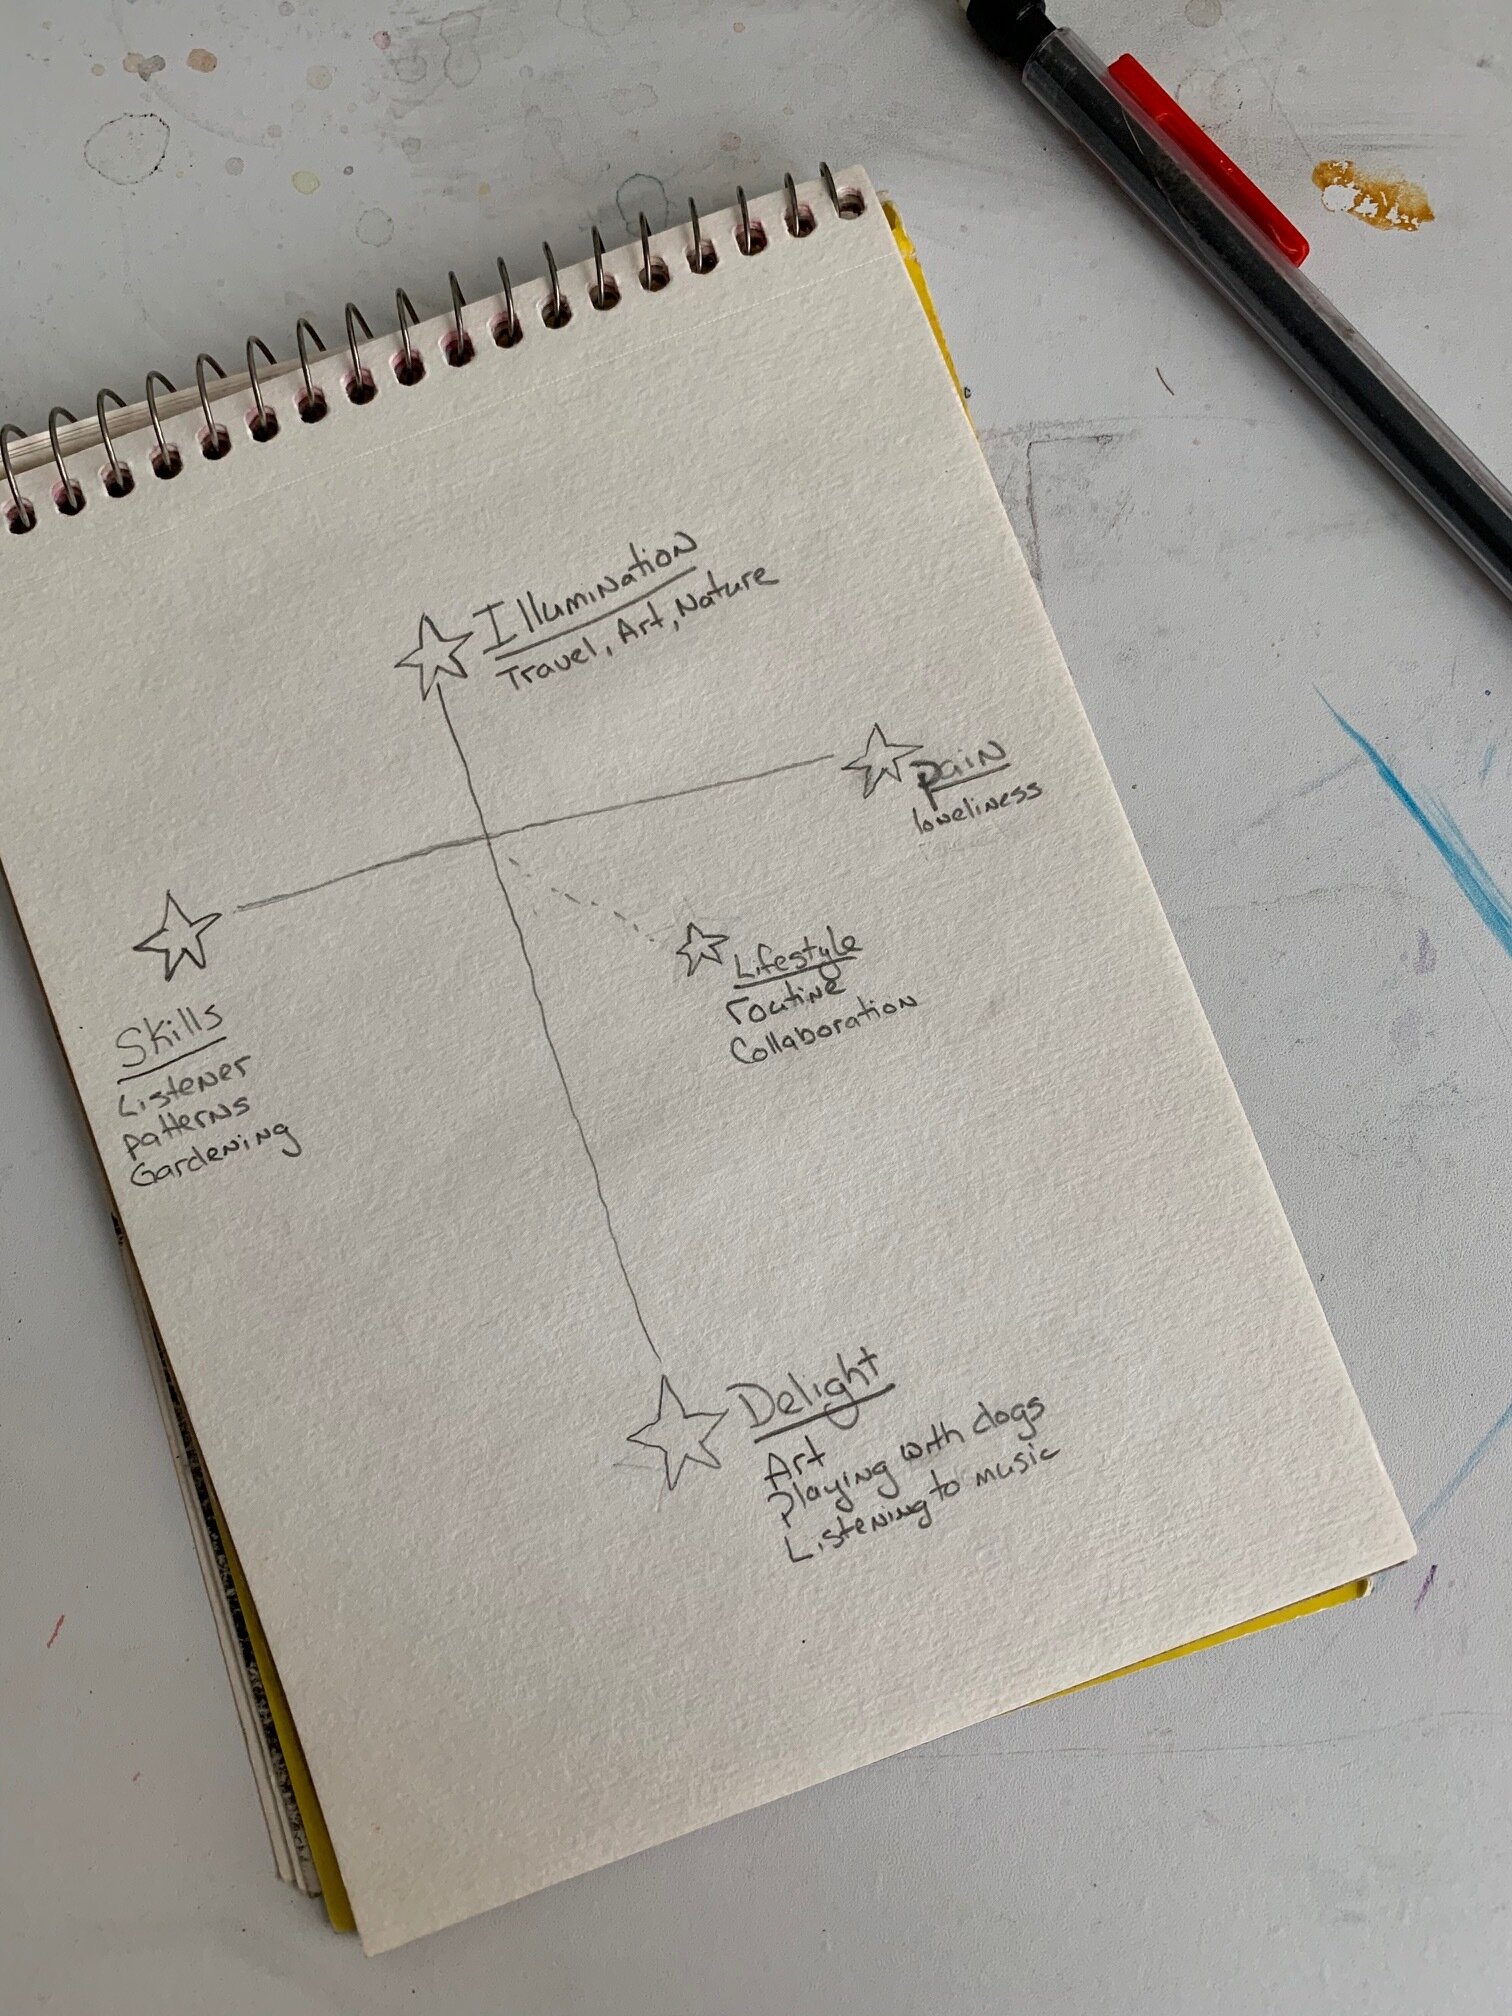 Illumination
Travel, Art, Nature
pain
loneliness
Lifestyle
routine
Collaboration
Skills
Listener
patterns
Gardening
Delight
Art
Playing with dogs
Listening to music